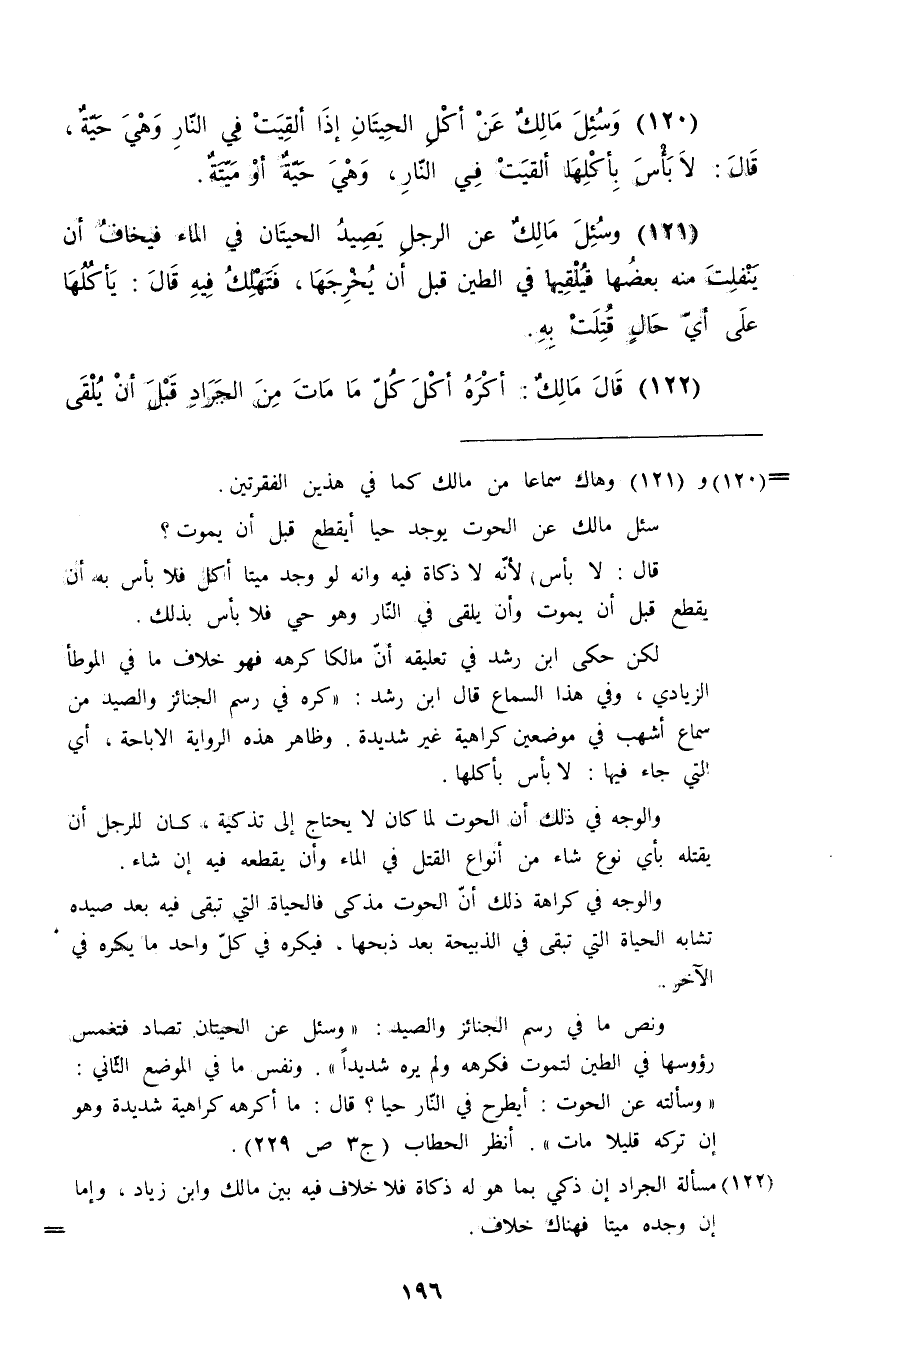 (١٢٠) وَسُئِلَ مَالِكٌ عَنْ أكْلِ الحِيتَانِ إذَا ألقِيَتْ فِي النَّارِ وَهْيَ حَيّةٌ ،
قَالَ : لاَ بَأْسَ بِأكْلِهَا ألقيَتْ فِي النَّارِ ، وَهْيَ حَيّةٌ أوْ مَيّتَةٌ .
(١٢١) وسُئِلَ مَالِكٌ عن الرجلِ يَصِيدُ الحيتَان في الماء فيخافُ أن
يَنْفلِتَ منه بعضُها فَيُلْقِيها في الطين قبل أن يُخْرِجَهَا ، فَتَهْلِكُ فِيهِ قَالَ : يَأكُلُهَا
علَى أيّ حَالٍ قُتِلَتْ بِهِ .
(١٢٢) قَالَ مَالِكٌ : أكْرَهُ أكْلَ كُلّ مَا مَاتَ مِنَ الجَرَادِ قَبْلَ أنْ يُلْقَى
= (١٢٠) و (١٢١) وهاك سماعا من مالك كما في هذين الفقرتين .
سئل مالك عن الحوت يوجد حيا أيقطع قبل أن يموت ؟
قال : لا بأس ، لأنّه لا ذكاة فيه وانه لو وجد ميتا أكل فلا بأس به أن
يقطع قبل أن يموت وأن يلقى في النّار وهو حي فلا بأس بذلك .
لكن حكى ابن رشد في تعليقه أنّ مالكا كرهه فهو خلاف ما في الموطأ
الزيادي ، وفي هذا السماع قال ابن رشد : « كره في رسم الجنائز والصيد من
سماع أشهب في موضعين كراهية غير شديدة . وظاهر هذه الرواية الاباحة ، أي
التي جاء فيها : لا بأس بأكلها .
والوجه في ذلك أن الحوت لما كان لا يحتاج إلى تذكية ، كان للرجل أن
يقتله بأي نوع شاء من أنواع القتل في الماء وأن يقطعه فيه إن شاء .
والوجه في كراهة ذلك أنّ الحوت مذكى فالحياة التي تبقى فيه بعد صيده
تشابه الحياة التي تبقى في الذبيحة بعد ذبحها . فيكره في كلّ واحد ما يكره في
الآخر .
ونص ما في رسم الجنائز والصيد : « وسئل عن الحيتان تصاد فتغمس
رؤوسها في الطين لتموت فكرهه ولم يره شديداً » . ونفس ما في الموضع الثّاني :
« وسألته عن الحوت : أيطرح في النّار حيا ؟ قال : ما أكرهه كراهية شديدة وهو
إن تركه قليلا مات » . أنظر الحطاب ( ج٣ ص ٢٢٩ ) .
(١٢٢) مسألة الجراد إن ذكي بما هو له ذكاة فلا خلاف فيه بين مالك وابن زياد ، وإما
إن وجده ميتا فهناك خلاف . =
١٩٦